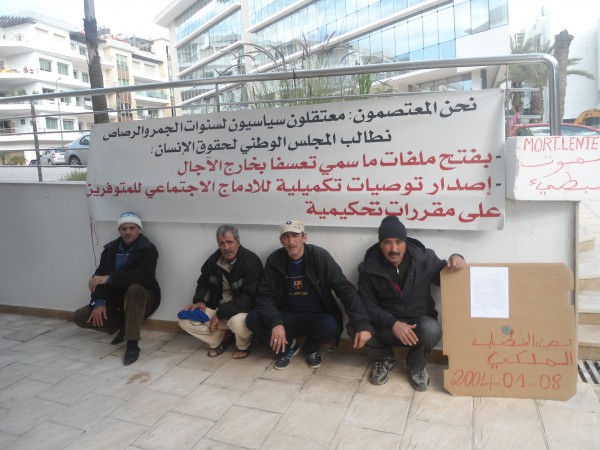 نحن المعتصمون: معتقلون سياسيون لسنوات الجمر والرصاص
نطالب المجلس الوطني لحقوق الإنسان:
- بفتح ملفات ما سمي تعسفا بخارج الآجال
- إصدار توصيات تكميلية للادماج الاجتماعي للمتوفرين
على مقررات تحكيمية
MORT.LENTE
موت
بطيء
نص الخطاب
الملكي
2004-01-08